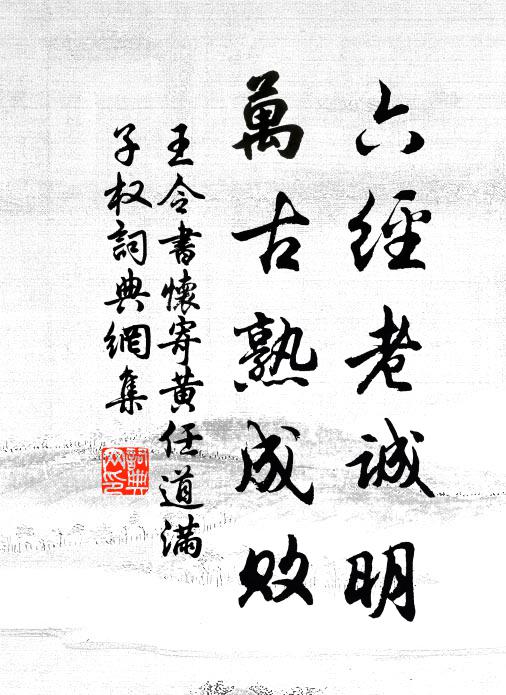 六經老誠明
萬古熟成敗
王令書懷寄黃任道滿
子权詞典網集
詞典網印